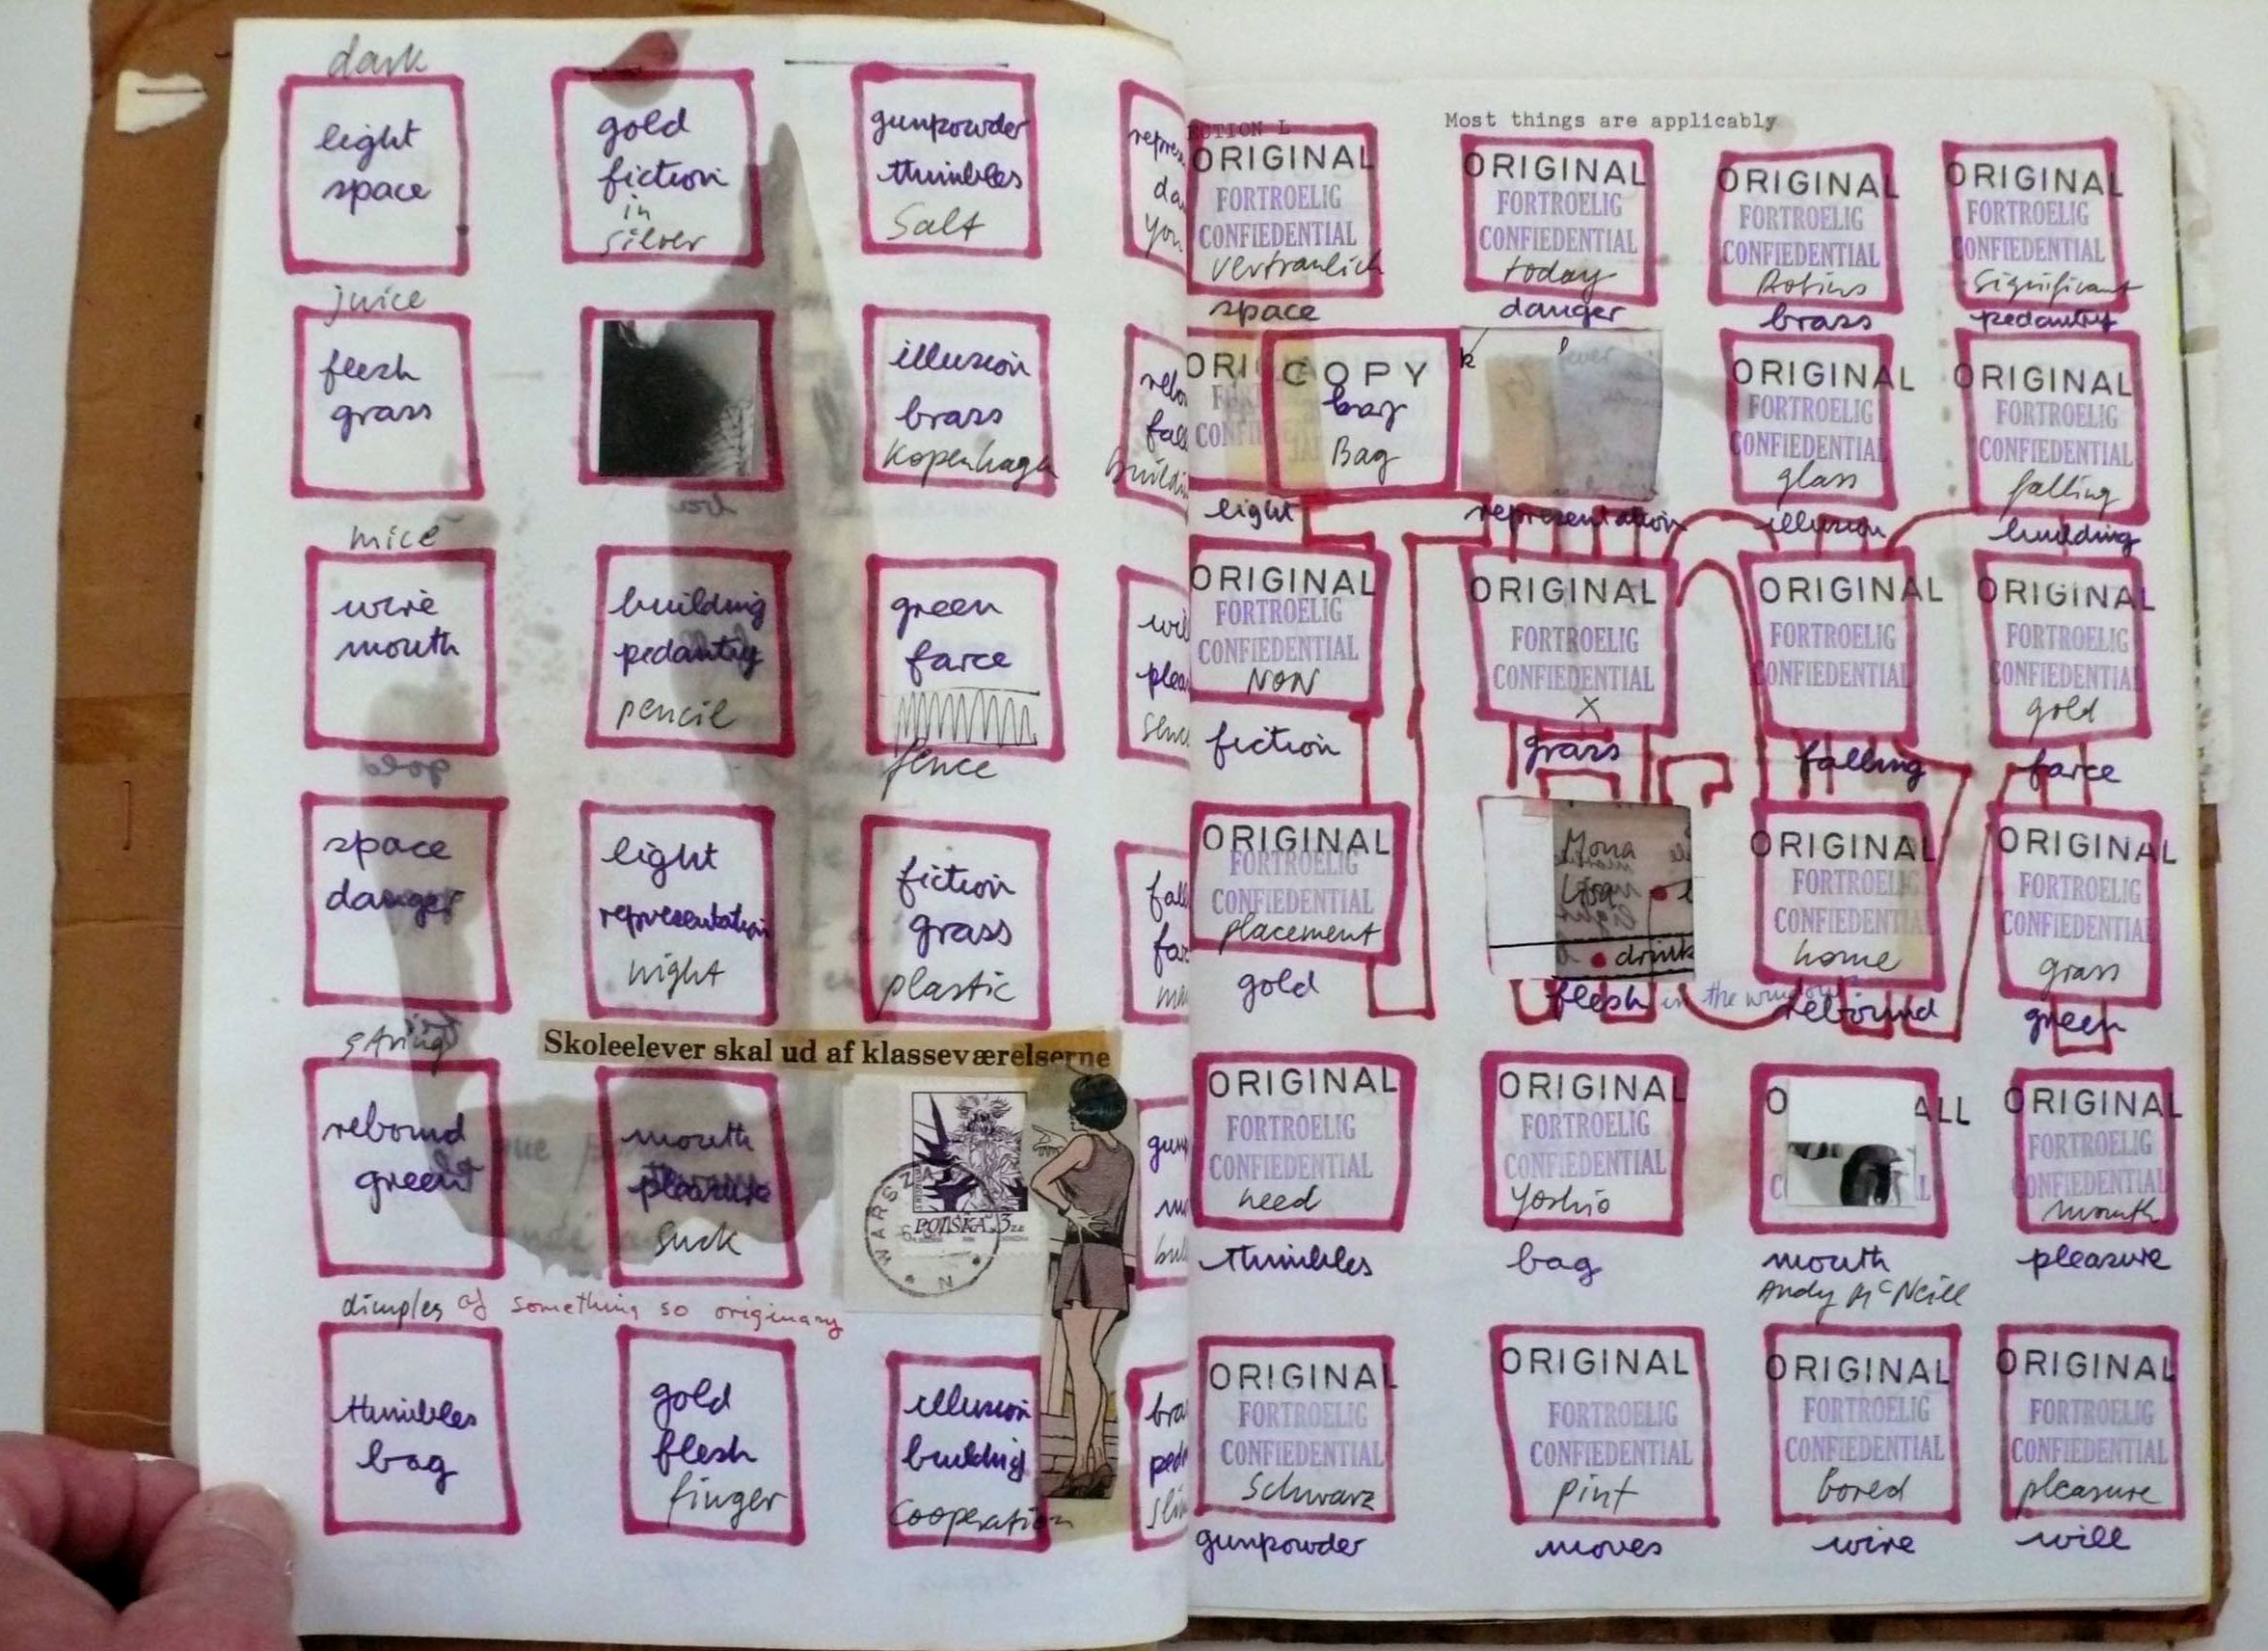 dark
light
space
gold
fiction
in
silver
gunpowder
thimbles
Salt
juice
flesh
grass
illusion
brass
Kopenhagen
mice
wire
mouth
building
pedantry
pencil
green
farce
fence
space
danger
light
representation
night
fiction
grass
plastic
string
Skoleelever skal ud af klasseværelserne
rebound
green
mouth
pleasure
Suck
WARSZA
POLSKA 3 ZŁ
N
dimples of something so originary
thimbles
bag
gold
flesh
finger
illusion
building
Cooperation
ECTION L
Most things are applicably
ORIGINAL
FORTROELIG
CONFIEDENTIAL
vertraulich
space
ORIGINAL
FORTROELIG
CONFIEDENTIAL
today
danger
ORIGINAL
FORTROELIG
CONFIEDENTIAL
brass
ORIGINAL
FORTROELIG
CONFIEDENTIAL
Significant
pedantry
ORI
COPY
bag
Bag
light
representation
ORIGINAL
FORTROELIG
CONFIEDENTIAL
glass
illusion
ORIGINAL
FORTROELIG
CONFIEDENTIAL
falling
building
ORIGINAL
FORTROELIG
CONFIEDENTIAL
NON
fiction
ORIGINAL
FORTROELIG
CONFIEDENTIAL
X
grass
ORIGINAL
FORTROELIG
CONFIEDENTIAL
falling
ORIGINAL
FORTROELIG
CONFIEDENTIAL
gold
farce
ORIGINAL
FORTROELIG
CONFIEDENTIAL
placement
gold
Mona
drink
flesh in the window
ORIGINAL
FORTROELIG
CONFIEDENTIAL
home
rebound
ORIGINAL
FORTROELIG
CONFIEDENTIAL
grass
green
ORIGINAL
FORTROELIG
CONFIEDENTIAL
need
thimbles
ORIGINAL
FORTROELIG
CONFIEDENTIAL
Yoshio
bag
O ALL
mouth
Andy McNeill
ORIGINAL
FORTROELIG
CONFIEDENTIAL
mouth
pleasure
ORIGINAL
FORTROELIG
CONFIEDENTIAL
Schwarz
gunpowder
ORIGINAL
FORTROELIG
CONFIEDENTIAL
pint
moves
ORIGINAL
FORTROELIG
CONFIEDENTIAL
bored
wire
ORIGINAL
FORTROELIG
CONFIEDENTIAL
pleasure
will